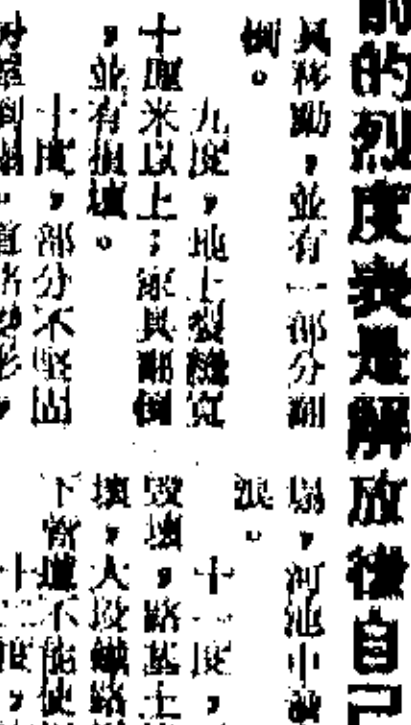 前的烈度表是解放後自己
具移動，並有一部分翻
倒。
九度，地土裂縫寬
十厘米以上；家具翻倒
，並有損壞。
十度，部分不堅固
塌，河池中
浪。
十一度，
毀壞，路基土
壞，大段鐵路
下管道不能使
十二度，